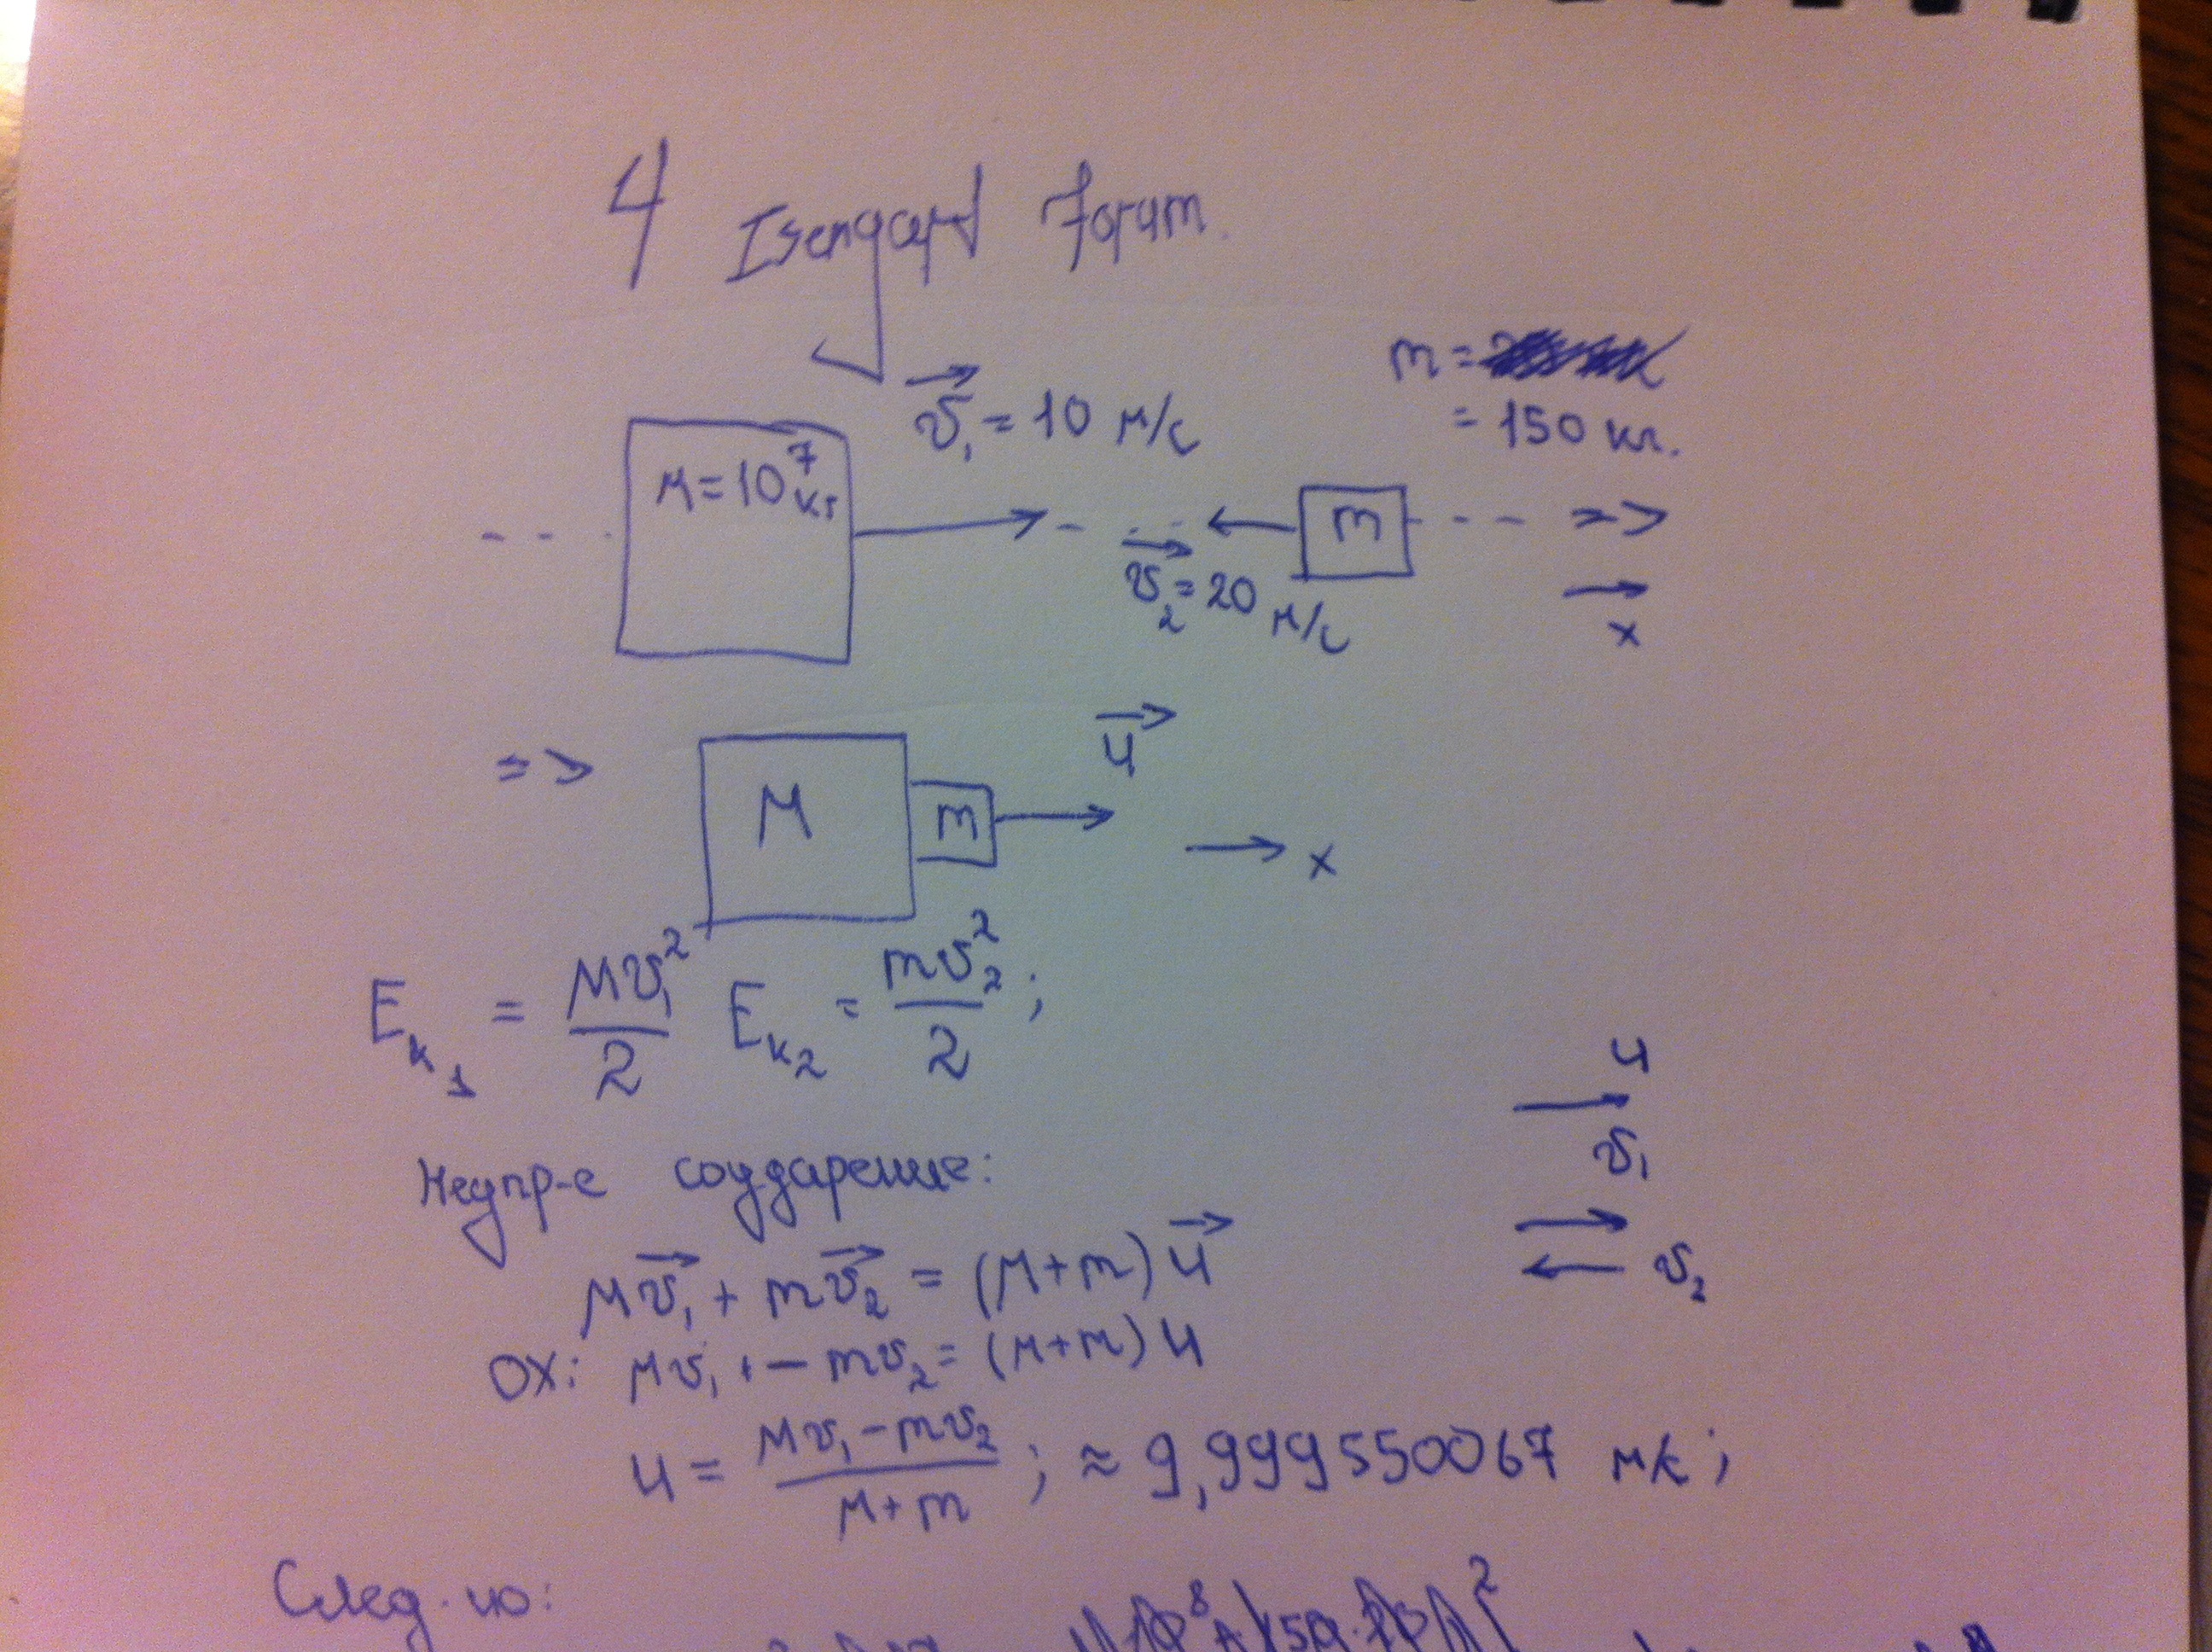 4 Isengard Forum.
m =
= 150 кг.
v₁ = 10 м/с
M = 10⁷ кг
m
=>
v₂ = 20 м/с
x
=>
M
m
u
x
Eₖ₁ = Mv₁²/2 Eₖ₂ = mv₂²/2;
u
v₁
v₂
Неупр-е соударение:
Mv₁ + mv₂ = (M+m)u
OX: Mv₁ + - mv₂ = (M+m)u
u = (Mv₁ - mv₂)/(M+m); ≈ 9,999550067 м/с;
След-но: